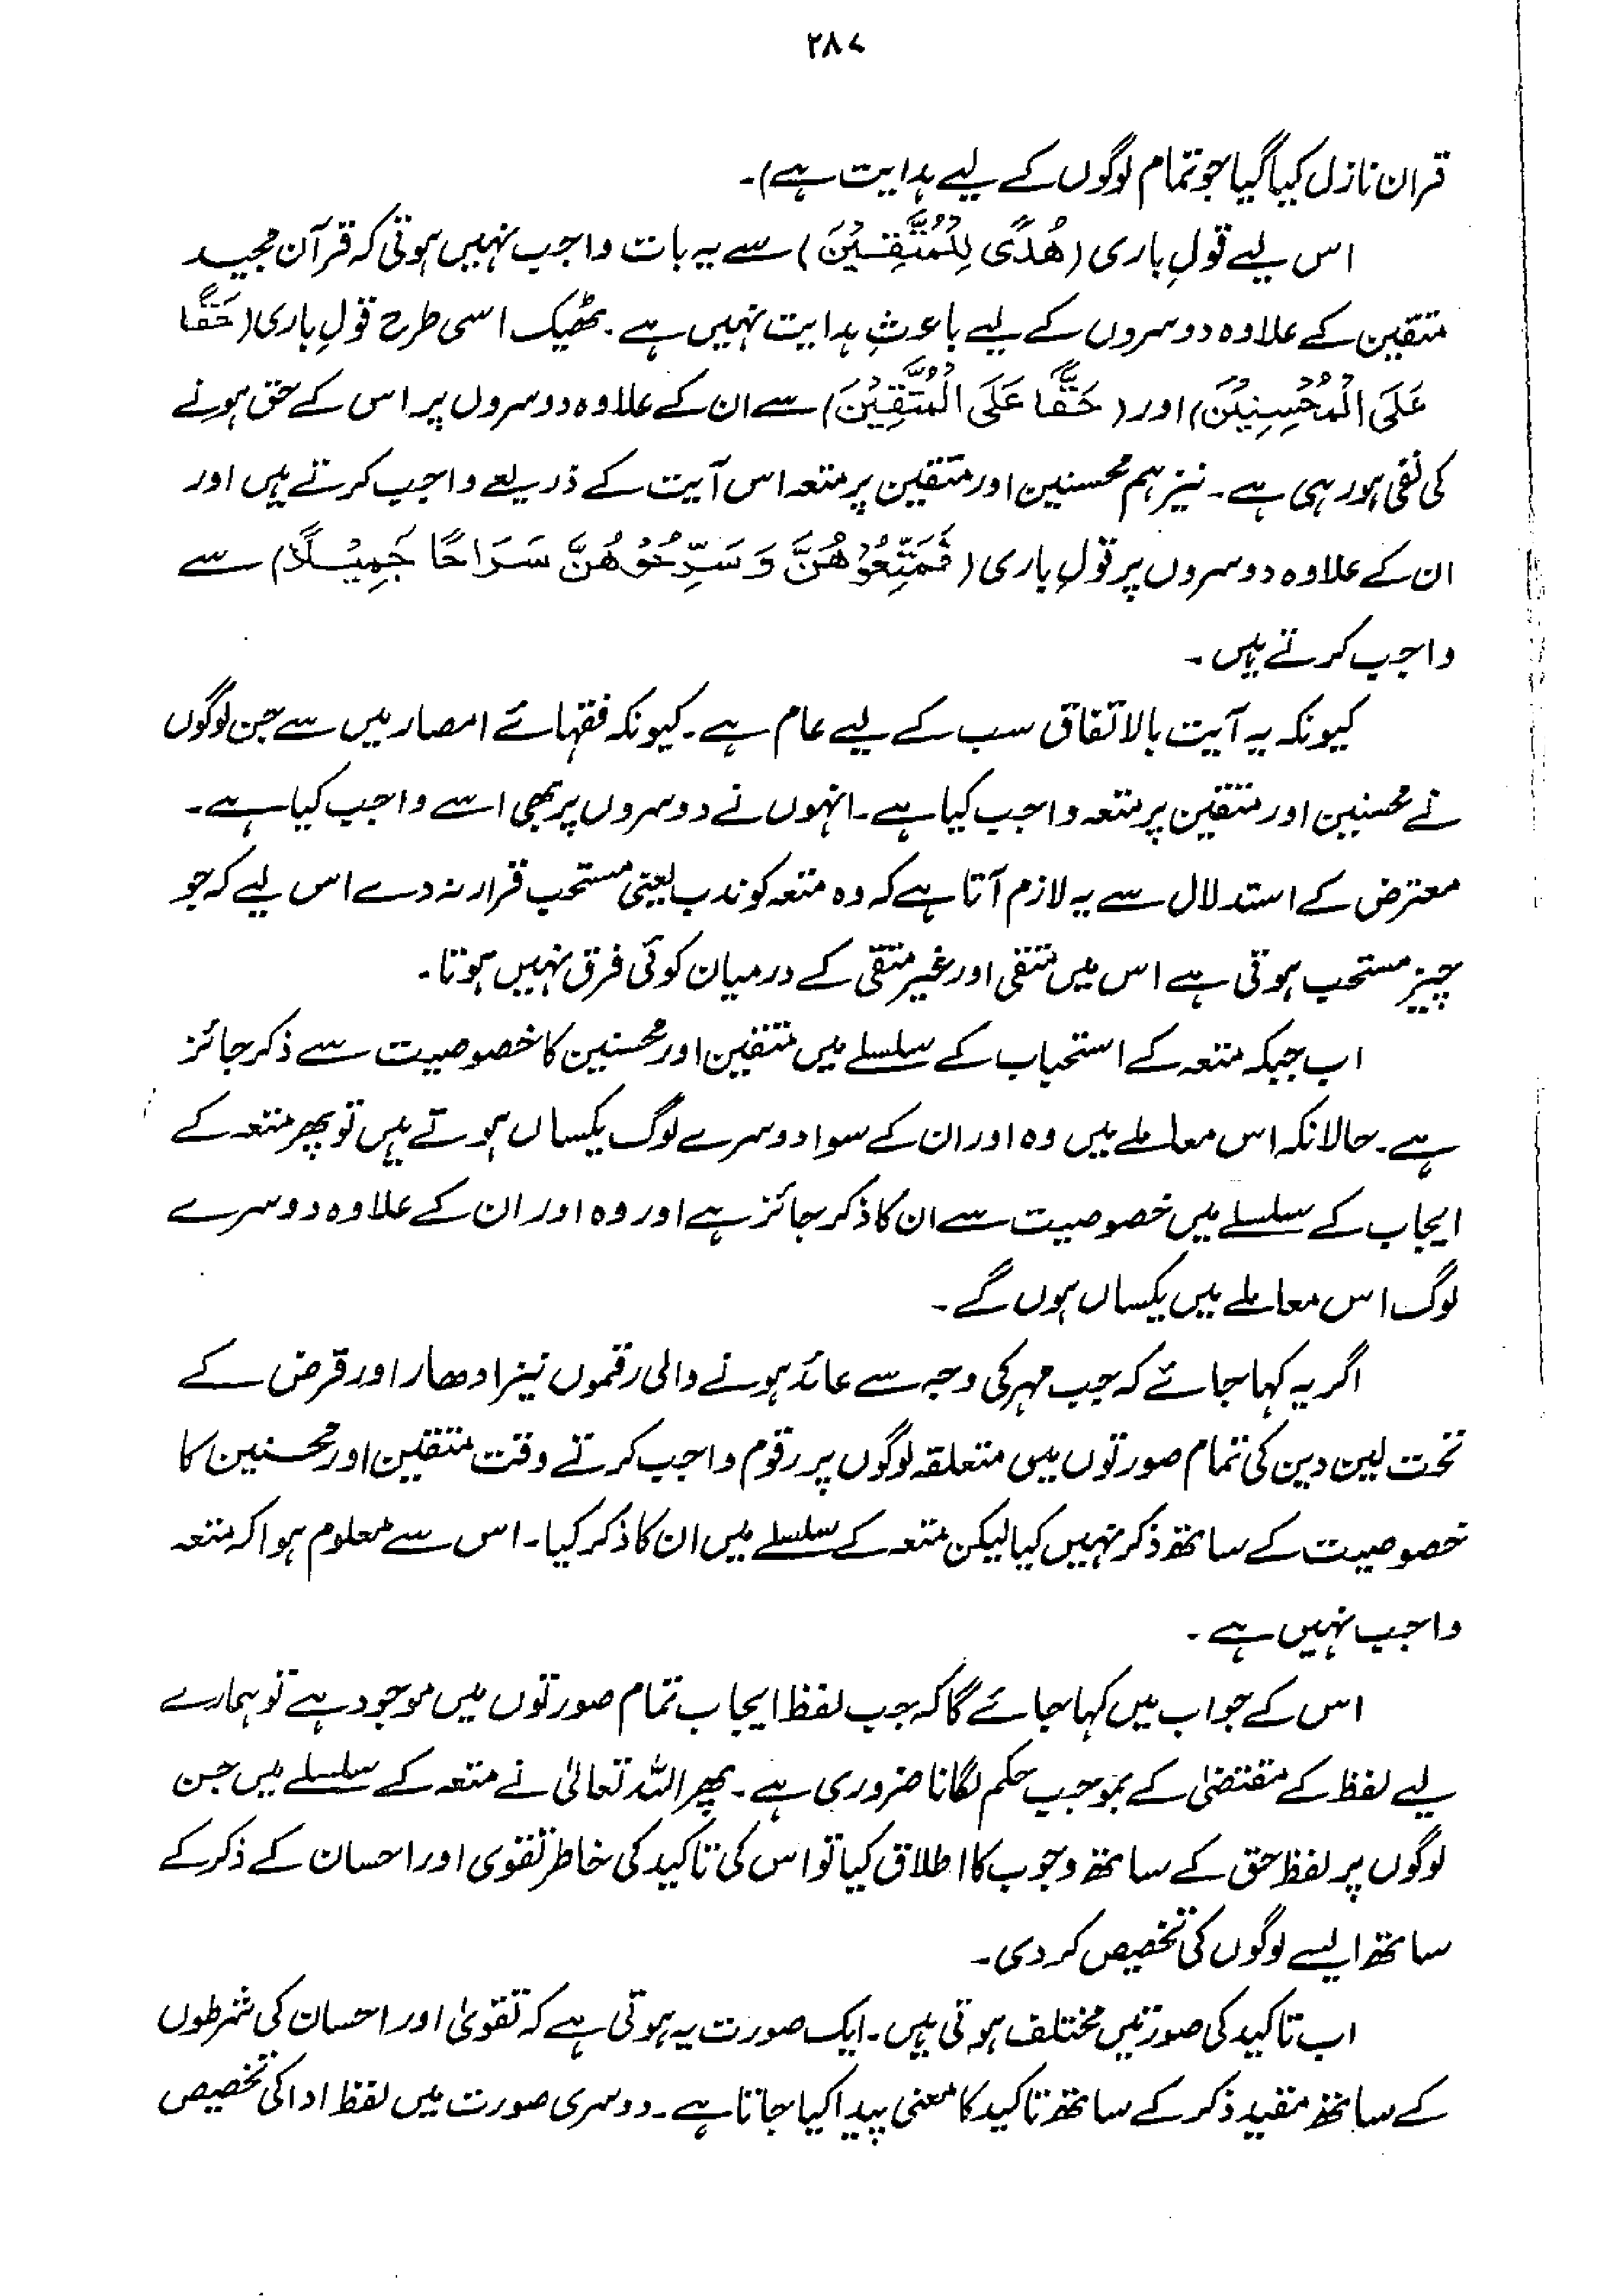 ۲۸۷
قران نازل کیا گیا جو تمام لوگوں کے لیے ہدایت ہے)۔
اس لیے قولِ باری (هُدًى لِلْمُتَّقِيْنَ) سے یہ بات واجب نہیں ہوتی کہ قرآن مجید
متقین کے علاوہ دوسروں کے لیے باعثِ ہدایت نہیں ہے۔ ٹھیک اسی طرح قولِ باری (حَقًّا
عَلَى الْمُحْسِنِيْنَ) اور (حَقًّا عَلَى الْمُتَّقِيْنَ) سے ان کے علاوہ دوسروں پر اس کے حق ہونے
کی نفی ہو رہی ہے۔ نیز ہم محسنین اور متقین پر متعہ اس آیت کے ذریعے واجب کرتے ہیں اور
ان کے علاوہ دوسروں پر قولِ باری (فَمَتِّعُوْهُنَّ وَسَرِّحُوْهُنَّ سَرَاحًا جَمِيْلًا) سے
واجب کرتے ہیں۔
کیونکہ یہ آیت بالاتفاق سب کے لیے عام ہے۔ کیونکہ فقہائے امصار میں سے جن لوگوں
نے محسنین اور متقین پر متعہ واجب کیا ہے۔ انہوں نے دوسروں پر بھی اسے واجب کیا ہے۔
معترض کے استدلال سے یہ لازم آتا ہے کہ وہ متعہ کو ندب یعنی مستحب قرار نہ دے اس لیے کہ جو
چیز مستحب ہوتی ہے اس میں متقی اور غیر متقی کے درمیان کوئی فرق نہیں ہوتا۔
اب جبکہ متعہ کے استحباب کے سلسلے میں متقین اور محسنین کا خصوصیت سے ذکر جائز
ہے۔ حالانکہ اس معاملے میں وہ اور ان کے سوا دوسرے لوگ یکساں ہوتے ہیں تو پھر متعہ کے
ایجاب کے سلسلے میں خصوصیت سے ان کا ذکر جائز ہے اور وہ اور ان کے علاوہ دوسرے
لوگ اس معاملے میں یکساں ہوں گے۔
اگر یہ کہا جائے کہ جب مہر کی وجہ سے عائد ہونے والی رقموں نیز ادھار اور قرض کے
تحت لین دین کی تمام صورتوں میں متعلقہ لوگوں پر رقوم واجب کرتے وقت متقین اور محسنین کا
خصوصیت کے ساتھ ذکر نہیں کیا لیکن متعہ کے سلسلے میں ان کا ذکر کیا۔ اس سے معلوم ہوا کہ متعہ
واجب نہیں ہے۔
اس کے جواب میں کہا جائے گا کہ جب لفظ ایجاب تمام صورتوں میں موجود ہے تو ہمارے
لیے لفظ کے مقتضیٰ کے بموجب حکم لگانا ضروری ہے۔ پھر اللہ تعالیٰ نے متعہ کے سلسلے میں جن
لوگوں پر لفظ حق کے ساتھ وجوب کا اطلاق کیا تو اس کی تاکید کی خاطر تقوی اور احسان کے ذکر کے
ساتھ ایسے لوگوں کی تخصیص کر دی۔
اب تاکید کی صورتیں مختلف ہوتی ہیں۔ ایک صورت یہ ہوتی ہے کہ تقویٰ اور احسان کی شرطوں
کے ساتھ مقید ذکر کے ساتھ تاکید کا معنی پیدا کیا جاتا ہے۔ دوسری صورت میں لفظ ادا کی تخصیص